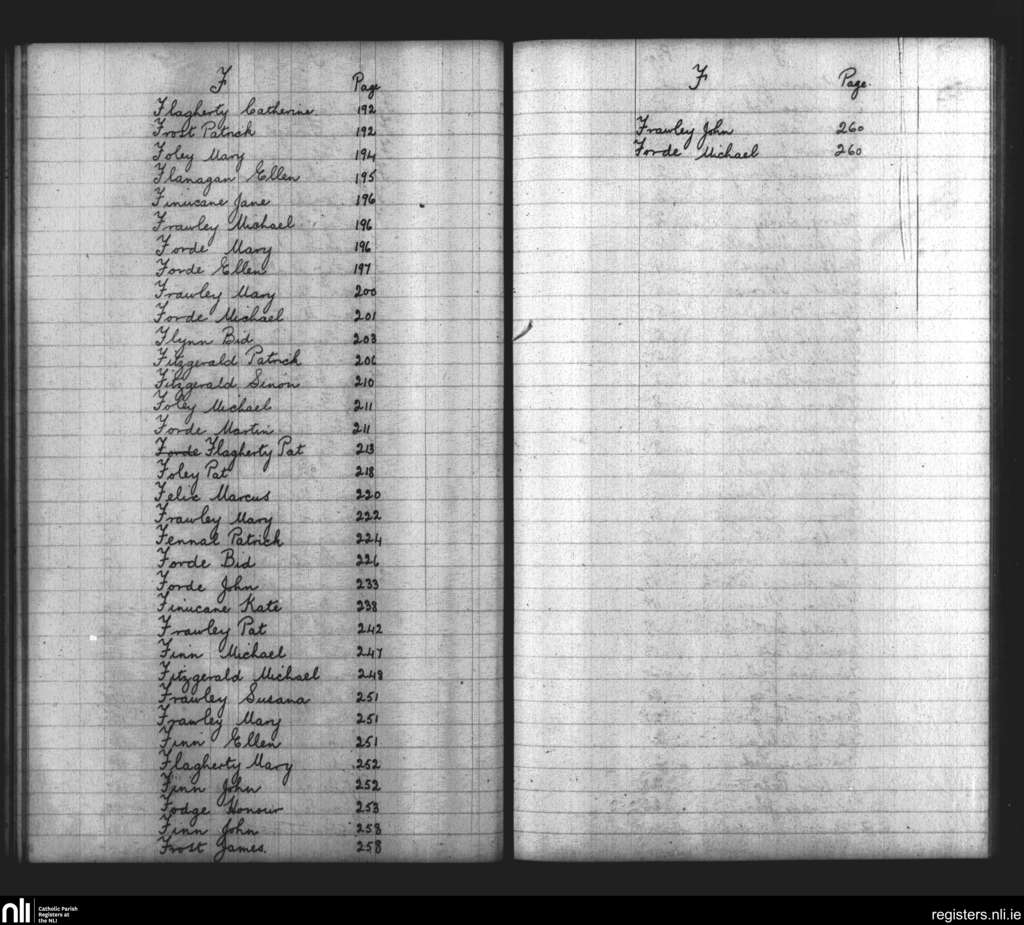 F Page
Flagherty Catherine 192
Frost Patrick 192
Foley Mary 194
Flanagan Ellen 195
Finucane Jane 196
Frawley Michael 196
Forde Mary 196
Forde Ellen 197
Frawley Mary 200
Forde Michael 201
Flynn Bid 203
Fitzgerald Patrick 206
Fitzgerald Sinon 210
Foley Michael 211
Forde Martin 211
Forde Flagherty Pat 213
Foley Pat 218
Felix Marcus 220
Frawley Mary 222
Fennal Patrick 224
Forde Bid 226
Forde John 233
Finucane Kate 238
Frawley Pat 242
Finn Michael 247
Fitzgerald Michael 248
Frawley Susana 251
Frawley Mary 251
Finn Ellen 251
Flagherty Mary 252
Finn John 252
Fodge Honour 253
Finn John 258
Frost James. 258
F Page.
Frawley John 260
Forde Michael 260
nli Catholic Parish
Registers at
the NLI
registers.nli.ie